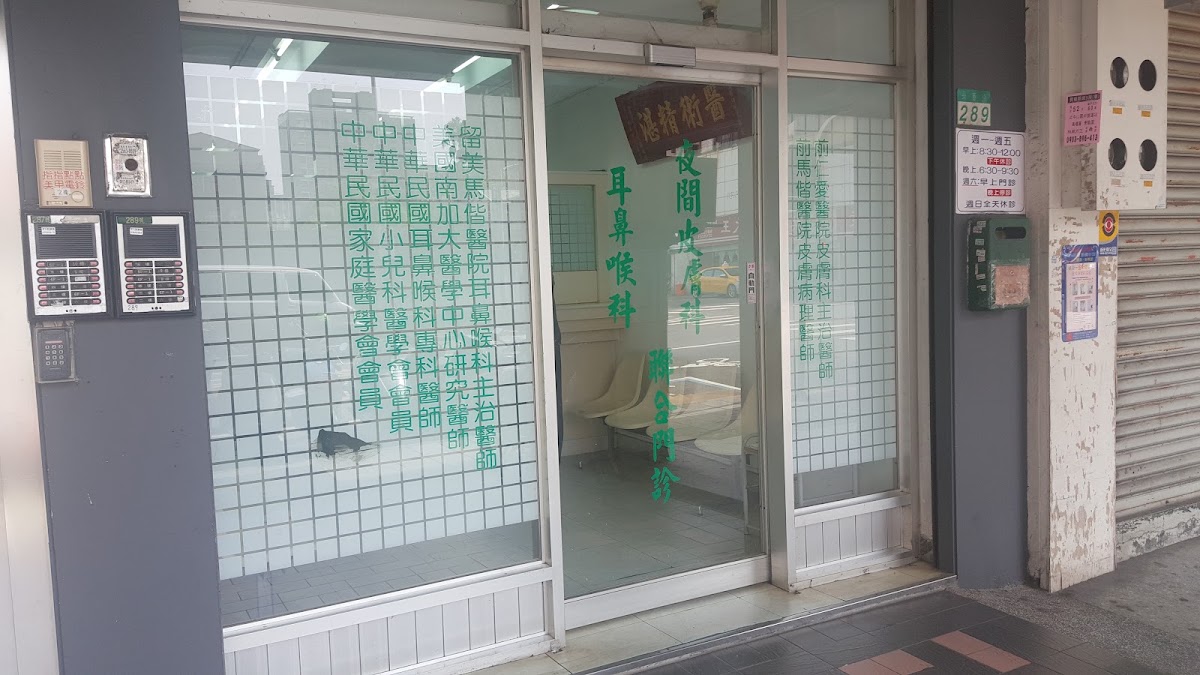 留美馬偕醫院耳鼻喉科主治醫師
美國南加大醫學中心研究醫師
中華民國耳鼻喉科專科醫師
中華民國小兒科醫學會會員
中華民國家庭醫學會會員
醫術精湛
夜間皮膚科
耳鼻喉科
聯合門診
自動門
前仁愛醫院皮膚科主治醫師
前馬偕醫院皮膚病理醫師
289
週一~週五
早上:8:30-12:00
下午休診
晚上:6:30-9:30
週六:早上門診
晚上停診
週日全天休診
287號
289號